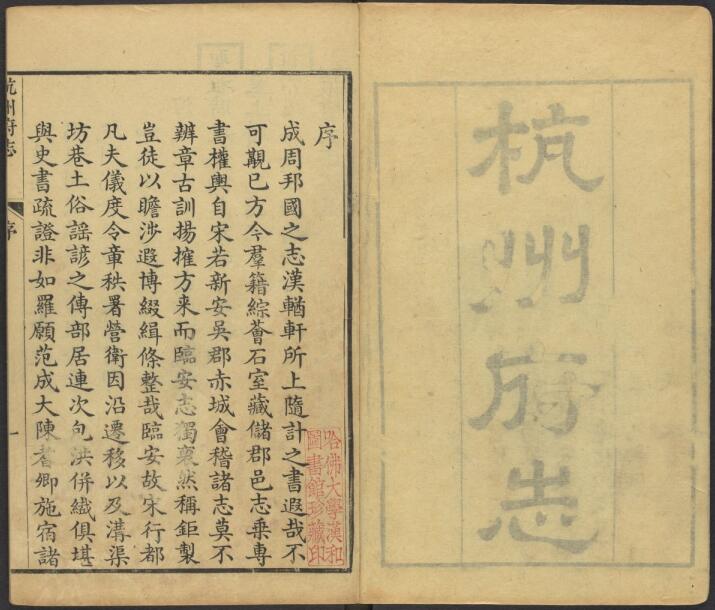 杭州府志
序
成周邦國之志漢輶軒所上隨計之書遐哉不
可覯已方今羣籍綜薈石室藏儲郡邑志乘專
書權輿自宋若新安吳郡赤城會稽諸志莫不
辨章古訓揚搉方来而臨安志獨裒然稱鉅製
豈徒以瞻涉遐博綴緝條整哉臨安故宋行都
凡夫儀度令章秩署營衛因沿遷移以及溝渠
坊巷土俗謡諺之傳部居連次包洪併纖俱堪
與史書疏證非如羅願范成大陳耆卿施宿諸
哈佛大學漢和
圖書館珍藏印
杭州府志
序
一